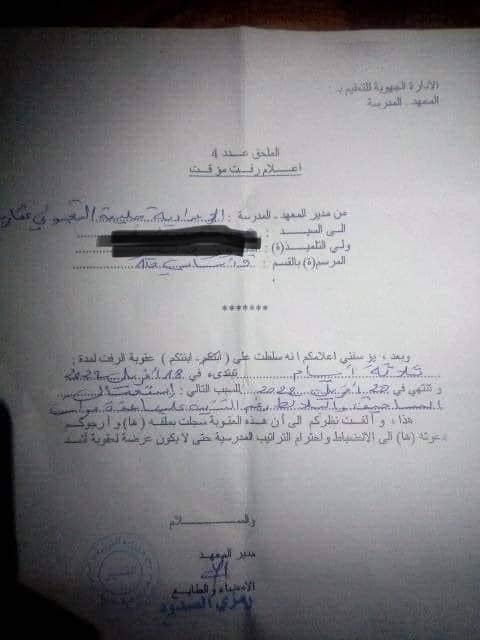 الإدارة الجهوية للتعليم بـ
المعهد - المدرسة
الملحق عدد 4
إعلام رفت مؤقت
من مدير المعهد - المدرسة : الإعدادية
الى السيد :
ولي التلميذ(ة) :
المرسم(ة) بالقسم : أساسي
*******
وبعد ، يؤسفني اعلامكم انه سلطت على ( ابنكم - ابنتكم ) عقوبة الرفت لمدة :
ثلاثة أيام تبتدىء في 18 أفريل
و تنتهي في 20 أفريل 2022 للسبب التالي : إستعمال
المساحيق
هذا ، و ألفت نظركم الى أن هذه العقوبة سجلت بملفه (ها) و أرجوكم
دعوته (ها) الى الانضباط و احترام التراتيب المدرسية حتى لا يكون عرضة لعقوبة أشد
والســــــــــلام
مدير المعهد
الامضاء والطابع
رمزي الصدود